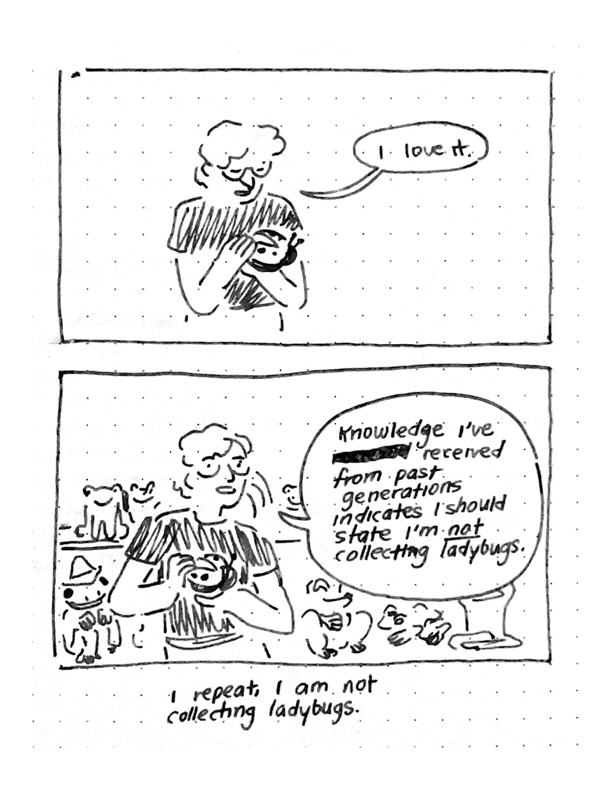 I love it.
Knowledge I've
received
from past
generations
indicates I should
state I'm not
collecting ladybugs.
I repeat, I am not
collecting ladybugs.